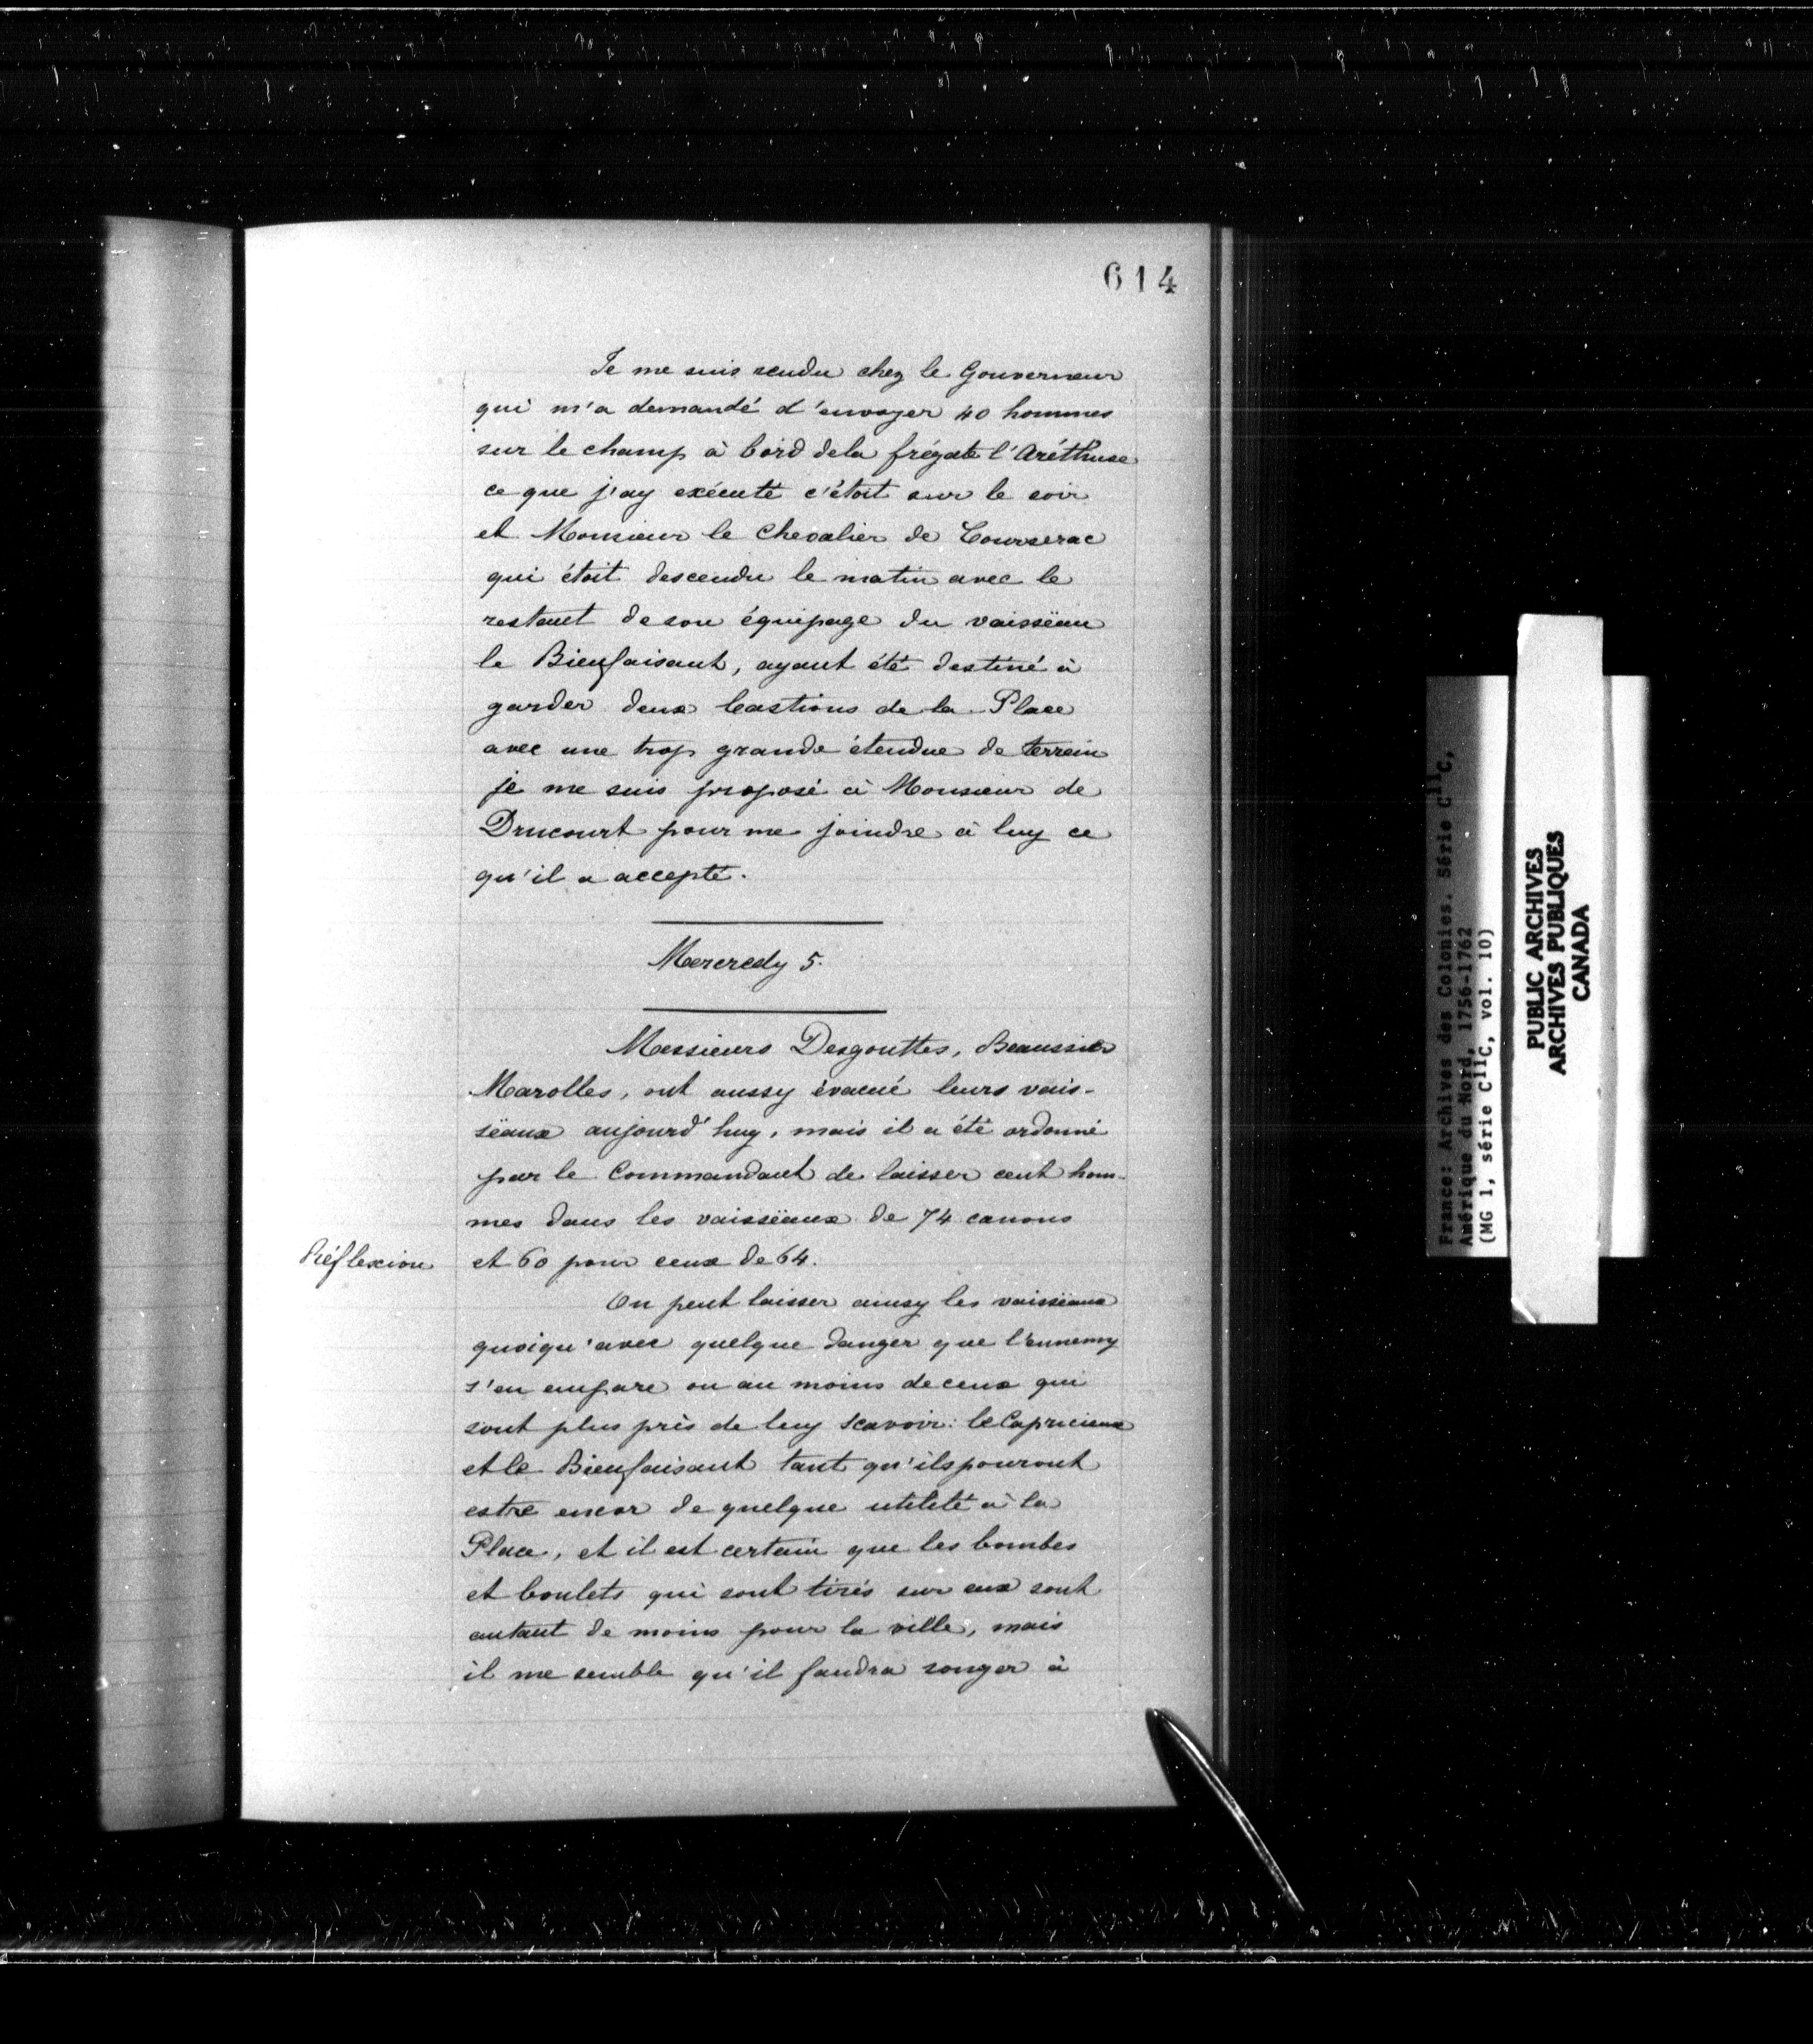 614
Je me suis rendu chez le Gouverneur
qui m'a demandé d'envoyer 40 hommes
sur le champ à bord dela frégate l'Aréthuse
ce que j'ay exécuté c'étoit sur le soir
et Monsieur le Chevalier de Courserac
qui étoit descendu le matin avec le
restant de son équipage du vaissëau
le Bienfaisant, ayant été destiné à
garder deux bastions de la Place
avec une trop grande étendue de terrein
je me suis proposé à Monsieur de
Drucourt pour me joindre à luy ce
qu'il a accepté.
Mercredy 5.
Messieurs Desgouttes, Beaussier
Marolles, ont aussy évacué leurs vais-
sëaux aujourd'huy, mais il a été ordonné
par le Commandant de laisser cent hom-
mes dans les vaissëaux de 74 canons
Réflexion et 60 pour ceux de 64.
On peut laisser ainsy les vaissëaux
quoiqu'avec quelque danger que l'ennemy
s'en empare ou au moins de ceux qui
sont plus près de luy scavoir: le Capricieux
et le Bienfaisant tant qu'ils pouront
estre encor de quelque utilité à la
Place, et il est certain que les bombes
et boulets qui sont tirés sur eux sont
autant de moins pour la ville, mais
il me semble qu'il faudra songer à
France: Archives des Colonies. Série C11C,
Amérique du Nord, 1756-1762
(MG 1, série C11C, vol. 10)
PUBLIC ARCHIVES
ARCHIVES PUBLIQUES
CANADA